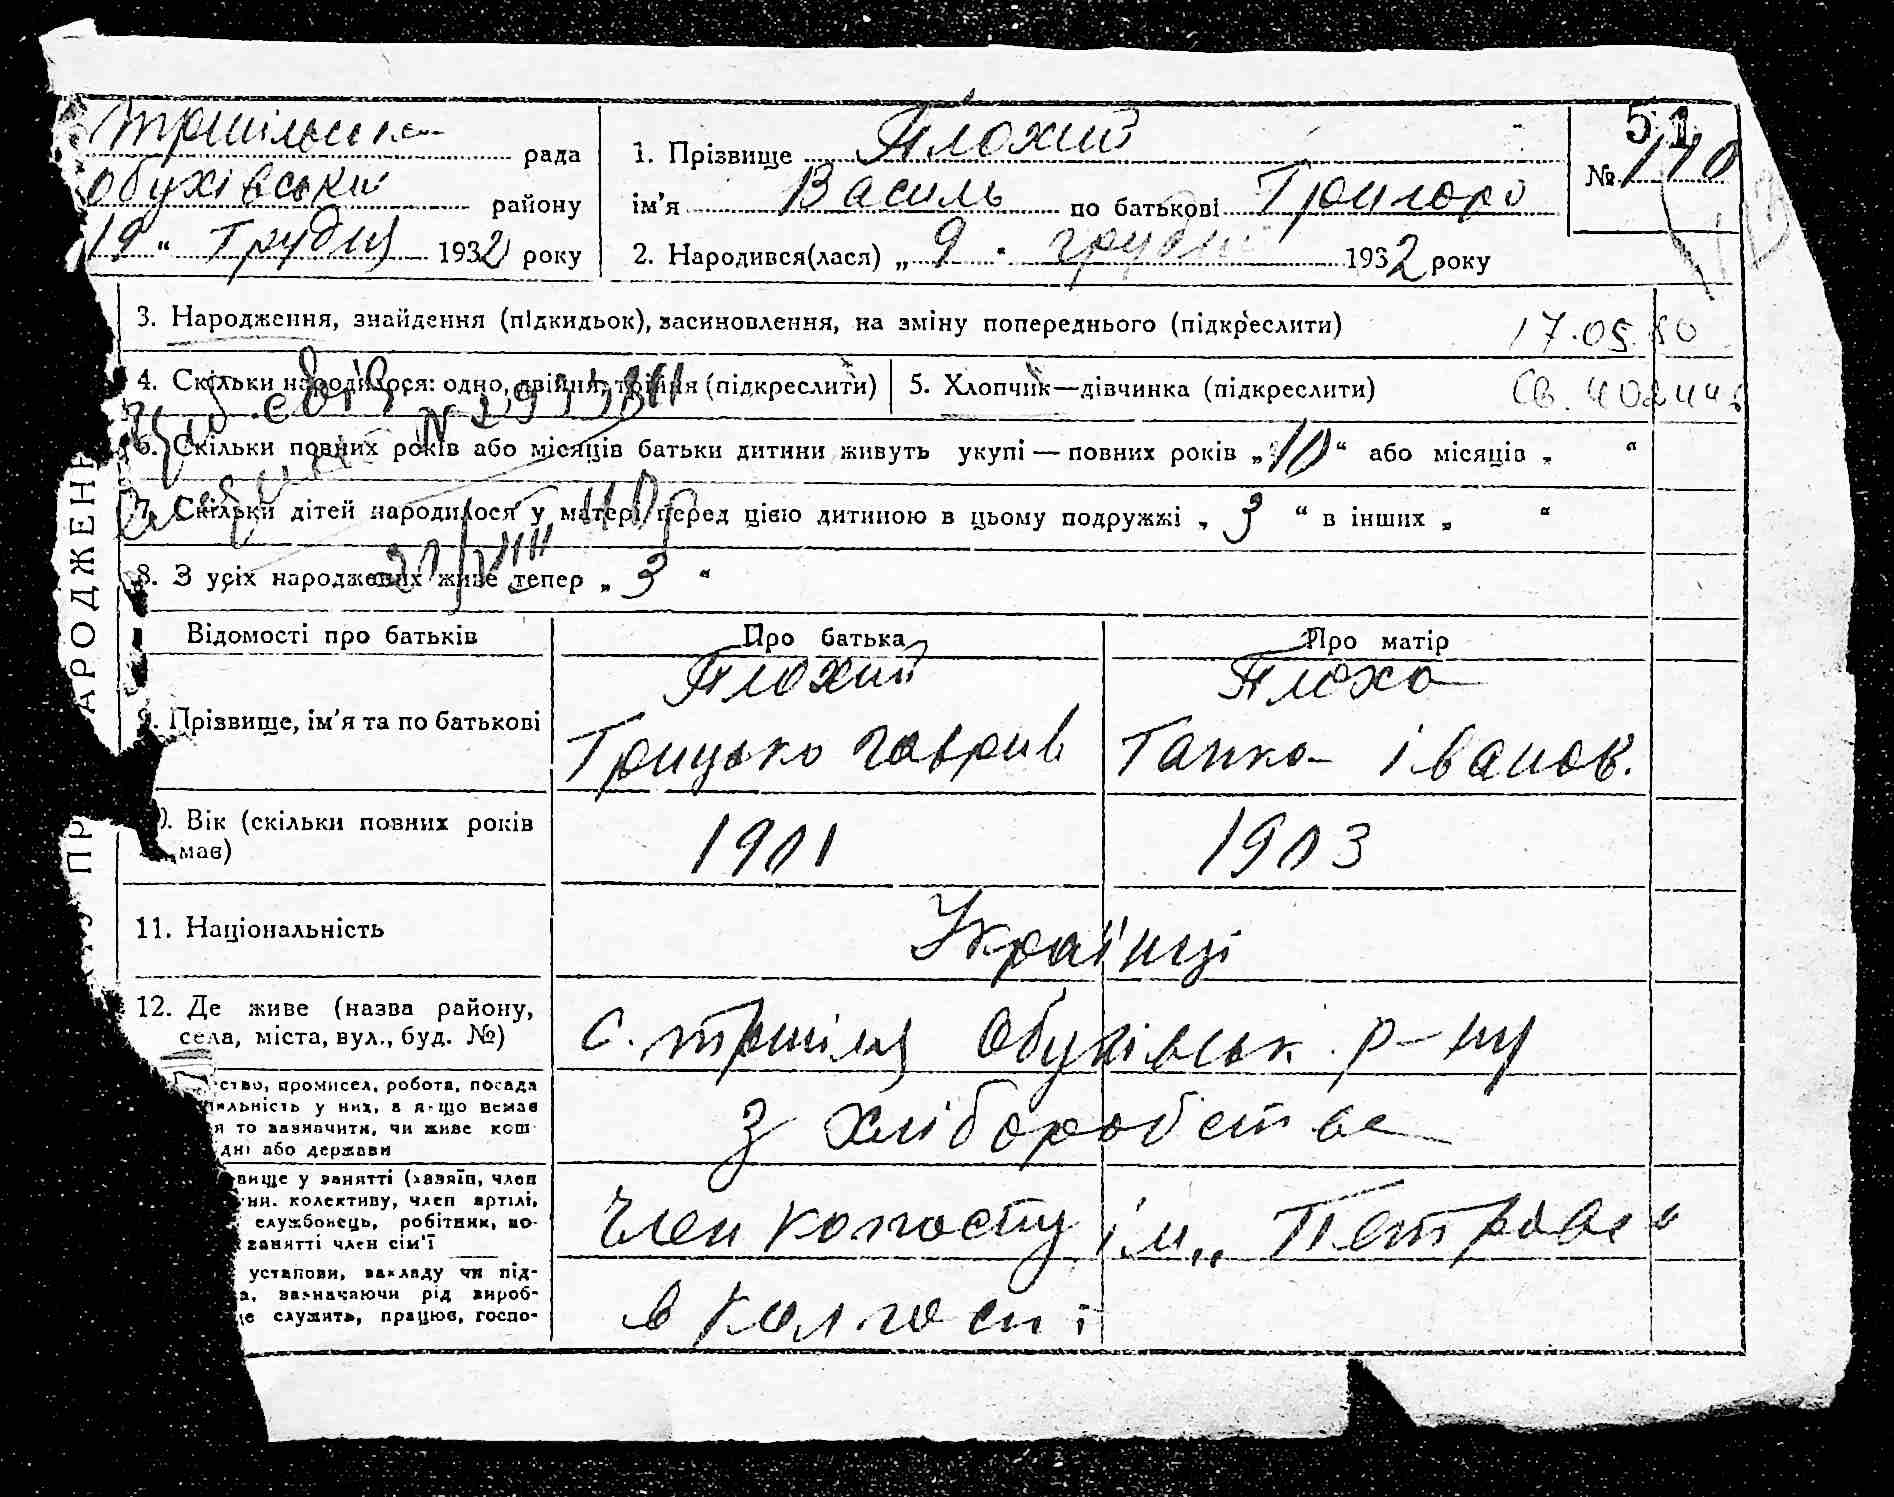 51
Трипільська рада
Обухівськ району
19 " Грудня 1932 року
1. Прізвище Плохий
ім'я Василь по батькові Григоро
2. Народився(лася) „ 9 " грудня 1932 року
№ 110
3. Народження, знайдення (підкидьок), засиновлення, на зміну попереднього (підкреслити)
17.05.80
4. Скільки народилося: одно, двійня, трійня (підкреслити)
5. Хлопчик—дівчинка (підкреслити)
Св.
6. Скільки повних років або місяців батьки дитини живуть укупі — повних років „ 10 “ або місяців „ “
7. Скільки дітей народилося у матері перед цією дитиною в цьому подружжі „ 3 “ в інших „ “
8. З усіх народжених живе тепер „ 3 “
Відомості про батьків Про батька Про матір
9. Прізвище, ім'я та по батькові
Плохий
Грицько Гаврив
Плоха
Ганка Іванов.
Вік (скільки повних років має)
1901 1903
11. Національність Українці
12. Де живе (назва району,
села, міста, вул., буд. №)
с. Трипілля Обухівськ. р-ну
ство, промисел, робота, посада
льність у них, а якщо немає
я то зазначити, чи живе кош
дні або держави
З хліборобства
вище у занятті (хазяїн, член
ни. колективу, член артілі,
службовець, робітник, по-
занятті член сім'ї
Член колгоспу ім „ Петровсь
установи, закладу чи під-
а, зазначаючи рід вироб-
де служить, працює, госпо-
в колгоспі